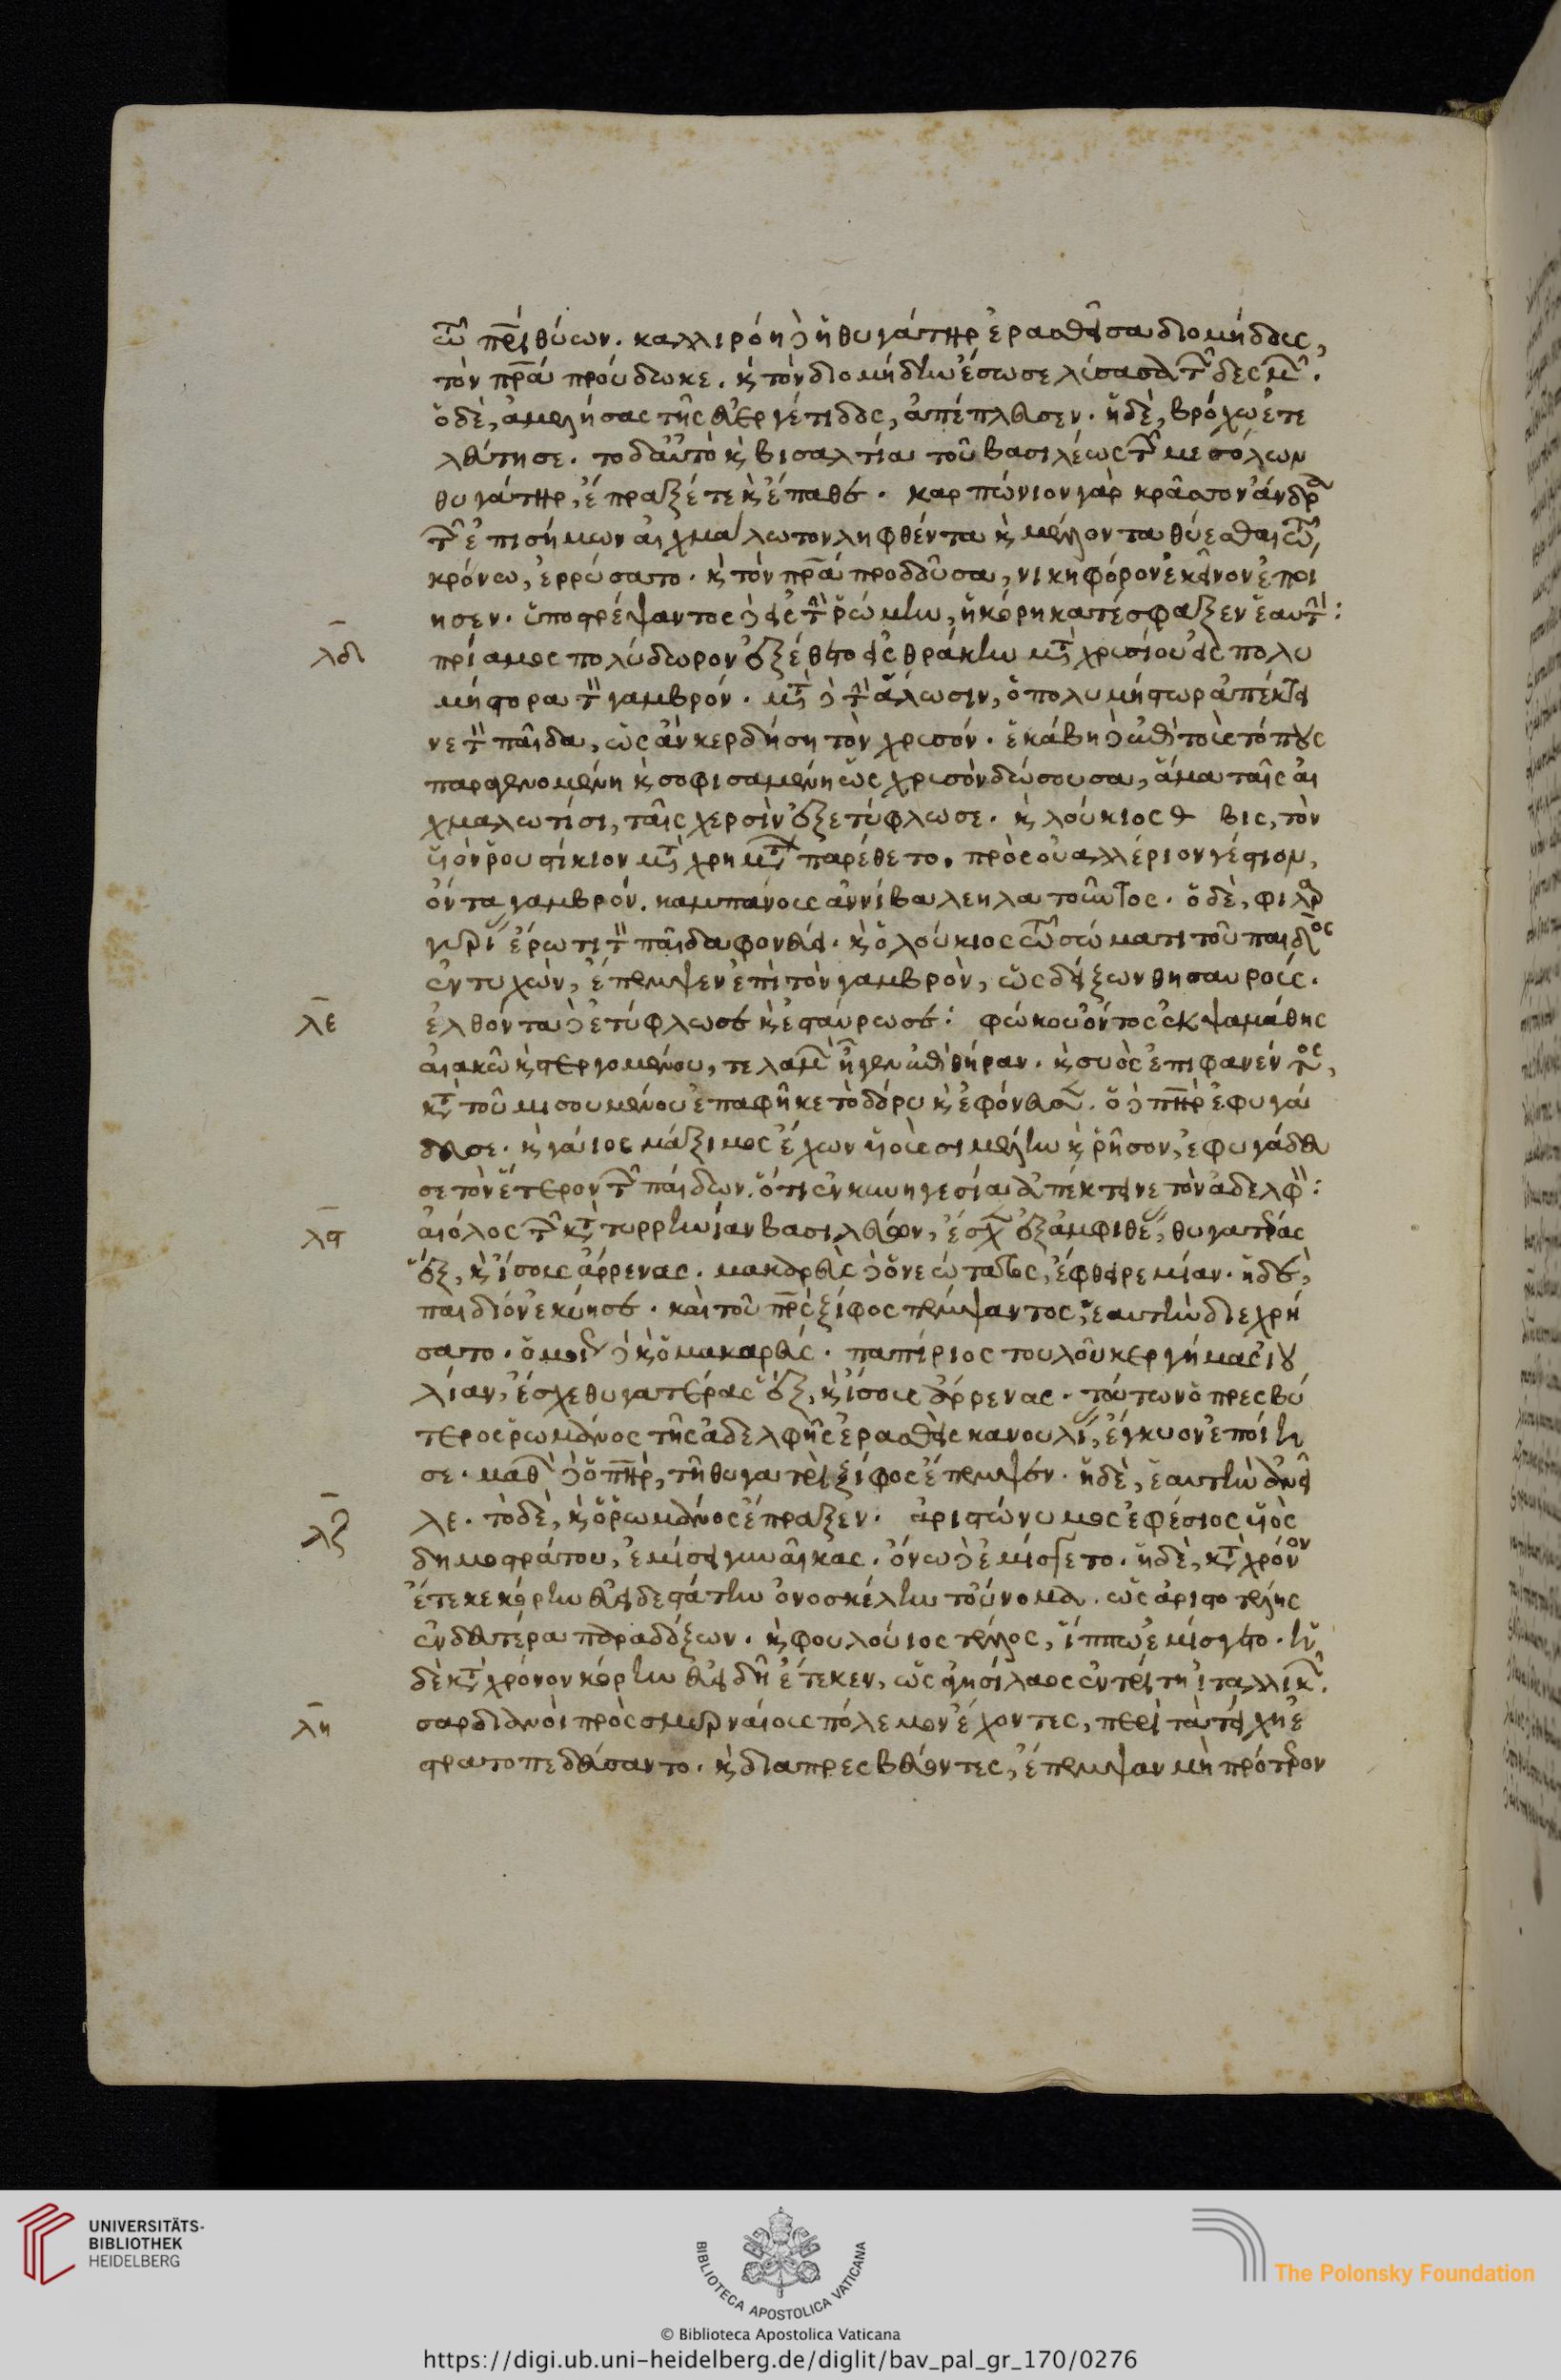 τῷ πατρὶ θύων. καλλιρόη δὲ ἡ θυγάτηρ ἐρασθεῖσα διομήδους,
τὸν πατέρα προύδωκε. καὶ τὸν διομήδην ἔσωσε λύσασα τῶν δεσμῶν.
ὁ δὲ, ἀμελήσας τῆς εὐεργέτιδος, ἀπέπλευσεν. ἡ δὲ, βρόχῳ ἐτε
λεύτησε. τὸ δ' αὐτὸ καὶ βισαλτία τοῦ βασιλέως τῶν μεσόλων
θυγάτηρ, ἔπραξέ τε καὶ ἔπαθε. καρπώνιον γὰρ κράσσον ἄνδρα
τῶν ἐπισήμων αἰχμάλωτον ληφθέντα καὶ μέλλοντα θύεσθαι τῷ
κρόνῳ, ἐρρύσατο. καὶ τὸν πατέρα προδοῦσα, νικηφόρον ἐκεῖνον ἐποί
ησεν. ὑποστρέψαντος δὲ εἰς τὴν ῥώμην, ἡ κόρη κατέσφαξεν ἑαυτήν:
λδ πρίαμος πολύδωρον ἐξέθετο εἰς θράκην μετὰ χρυσίου εἰς πολυ
μήστορα τὸν γαμβρόν. μετὰ δὲ τὴν ἅλωσιν, ὁ πολυμήστωρ ἀπέκτει
νε τὸν παῖδα, ὡς ἂν κερδήσῃ τὸν χρυσόν. ἑκάβη δὲ ἐπὶ τοὺς τόπους
παραγενομένη καὶ σοφισαμένη ὡς χρυσὸν δώσουσα, ἅμα ταῖς αἰ
χμαλωτίσι, ταῖς χερσὶν ἐξετύφλωσε. καὶ λούκιος βις, τὸν
υἱὸν ῥουστίκιον μετὰ χρημάτων παρέθετο, πρὸς οὐαλλέριον γέστιον,
ὄντα γαμβρόν. καμπάνους ἀννίβα λεηλατοῦντος. ὁ δὲ, φιλαρ
γυρίας ἔρωτι τὸν παῖδα φονεύει. καὶ ὁ λούκιος τῷ σώματι τοῦ παιδὸς
ἐντυχὼν, ἔπεμψεν ἐπὶ τὸν γαμβρὸν, ὡς δείξων θησαυρούς.
λε ἐλθόντα δὲ ἐτύφλωσε καὶ ἐσταύρωσε: φώκου ὄντος ἐκ ψαμάθης
αἰακῷ καὶ στεργομένου, τελαμὼν ἤγεν ἐπὶ θήραν. καὶ συὸς ἐπιφανέντος,
κατὰ τοῦ μισουμένου ἐπαφῆκε τὸ δόρυ καὶ ἐφόνευσεν. ὁ δὲ πατὴρ ἐφυγά
δευσε. καὶ γάιος μάξιμος ἔχων υἱοὺς σιμέλην καὶ ῥῆσον, ἐφυγάδευ
σε τὸν ἕτερον τῶν παίδων. ὅτι ἐν κυνηγεσίαις ἀπέκτεινε τὸν ἀδελφόν:
λϛ αἰόλος τῶν κατὰ τυρρηνίαν βασιλεύων, ἔσχεν ἐξ ἀμφιθέας, θυγατέρας
ἓξ, καὶ ἴσους ἄρρενας. μακαρεὺς δὲ ὁ νεώτατος, ἔφθειρε μίαν. ἡ δὲ,
παιδίον ἐκύησε. καὶ τοῦ πατρὸς ξίφος πέμψαντος, ἑαυτὴν διεχρή
σατο. ὁμοίως δὲ καὶ ὁ μακαρεύς. παπίριος τουλοῦκερ γήμας ἰου
λίαν, ἔσχε θυγατέρας ἓξ, καὶ ἴσους ἄρρενας. τούτων ὁ πρεσβύ
τερος ῥωμανος τῆς ἀδελφῆς ἐρασθεὶς κανουλίας, ἔγκυον ἐποίη
σε. μαθὼν δὲ ὁ πατὴρ, τῇ θυγατρὶ ξίφος ἔπεμψεν. ἡ δὲ, ἑαυτὴν ἀνεῖ
λζ λε. τὸ δὲ, καὶ ὁ ῥωμανος ἔπραξεν. ἀριστώνυμος ἐφέσιος υἱὸς
δημοστράτου, ἐμίσει γυναῖκας. ὄνῳ δὲ ἐμίσγετο. ἡ δὲ, κατὰ χρόνον
ἔτεκε κόρην εὐειδεστάτην ὀνοσκέλην τοὔνομα. ὡς ἀριστοτέλης
ἐν δευτέρᾳ παραδόξων. καὶ φουλούιος τέλλος, ἵππῳ ἐμίσγετο. ἡ
δὲ κατὰ χρόνον κόρην εὐειδῆ ἔτεκεν, ὡς ἀγησίλαος ἐν τρίτῃ ἰταλλικῶν.
λη σαρδιανοὶ πρὸς σμυρναίους πόλεμον ἔχοντες, περὶ τὰ τείχη ἐ
στρατοπεδεύσαντο. καὶ διαπρεσβεύοντες, ἔπεμψαν μὴ πρότερον
UNIVERSITÄTS-
BIBLIOTHEK
HEIDELBERG
BIBLIOTECA APOSTOLICA VATICANA
The Polonsky Foundation
© Biblioteca Apostolica Vaticana
https://digi.ub.uni-heidelberg.de/diglit/bav_pal_gr_170/0276